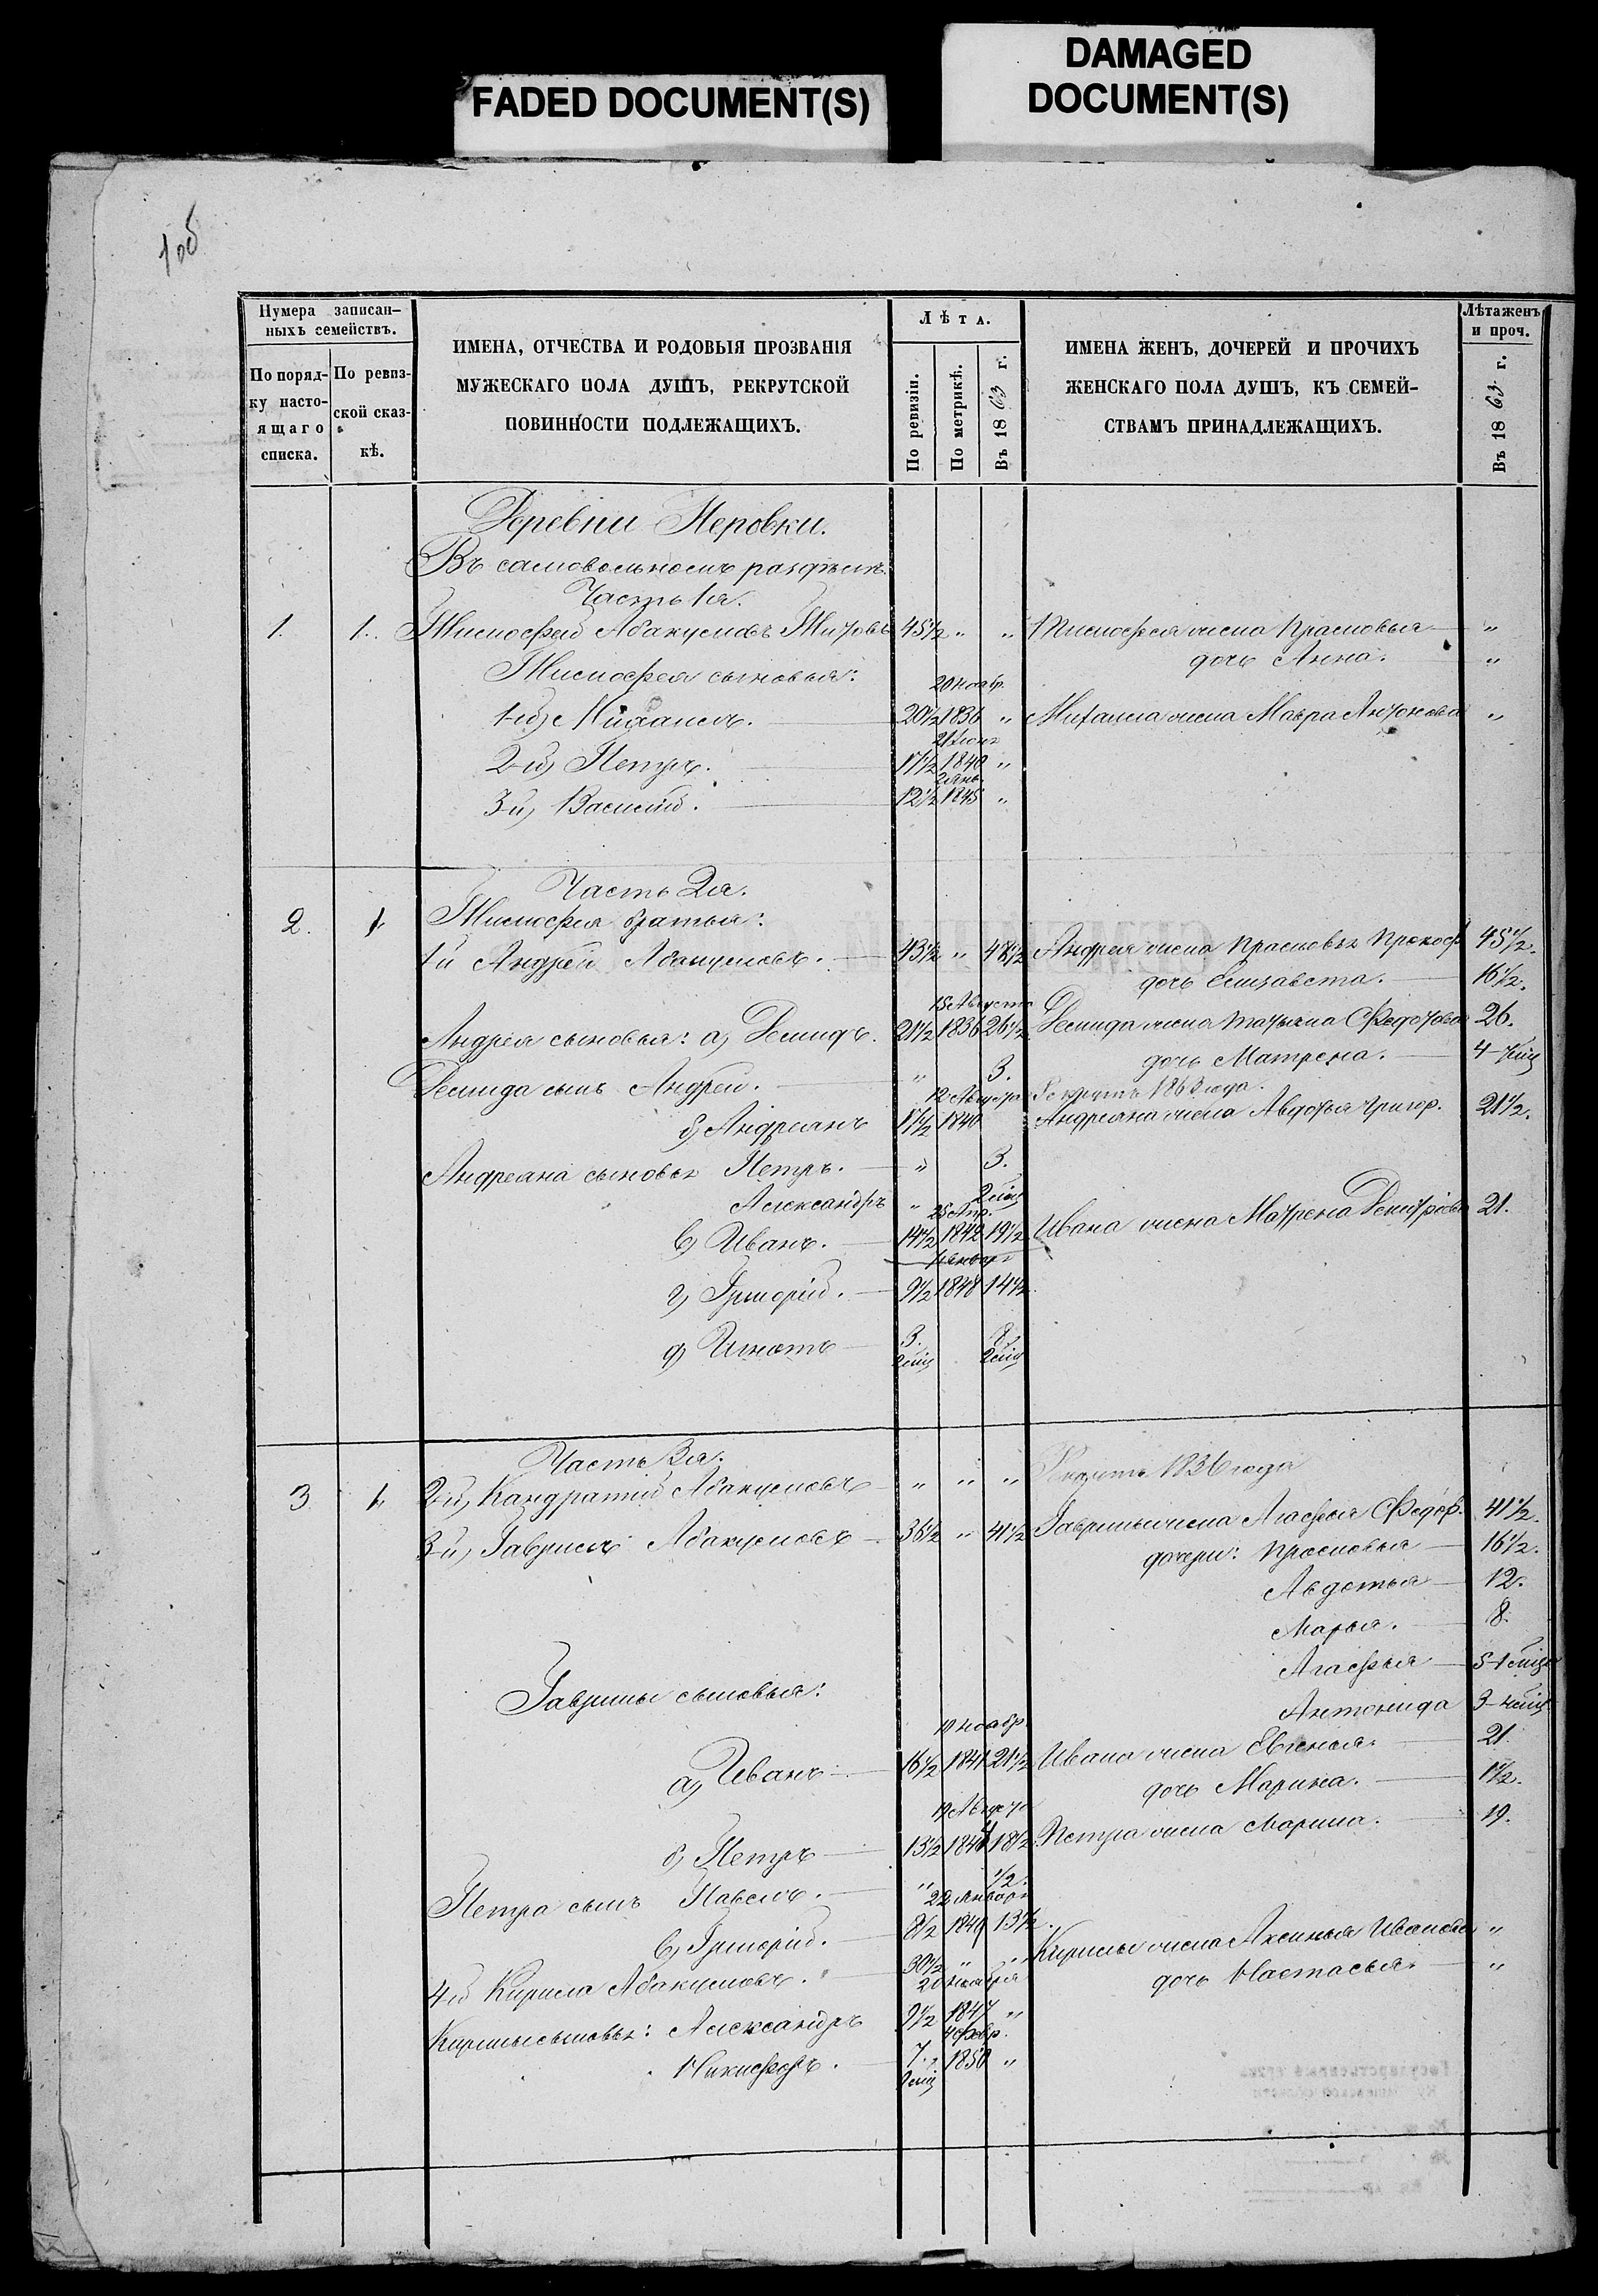 FADED DOCUMENT(S)
DAMAGED
DOCUMENT(S)
Нумера записан-
ныхъ семействъ.
По поряд-
ку насто-
ящаго
списка.
По ревиз-
ской сказ-
кѣ.
ИМЕНА, ОТЧЕСТВА И РОДОВЫЯ ПРОЗВАНІЯ
МУЖЕСКАГО ПОЛА ДУШЪ, РЕКРУТСКОЙ
ПОВИННОСТИ ПОДЛЕЖАЩИХЪ.
Лѣта.
По ревизіи.
По метрикѣ.
Въ 1863 г.
ИМЕНА ЖЕНЪ, ДОЧЕРЕЙ И ПРОЧИХЪ
ЖЕНСКАГО ПОЛА ДУШЪ, КЪ СЕМЕЙ-
СТВАМЪ ПРИНАДЛЕЖАЩИХЪ.
Лѣта женъ
и проч.
Въ 1863 г.
Деревни Перовки.
Въ самовольномъ раздѣлѣ.
Часть 1я.
1. 1. Тимофей Абакумовъ Титовъ 45½ " " Тимофея жена Прасковья "
дочь Анна. "
Тимофея сыновья:
20 нояб.
1-й, Михаилъ. 20½ 1836 " Михаила жена Мавра Антонова "
21 Июня
2-й, Петръ. 17½ 1840 "
2 Янв.
3-й, Василій. 12½ 1845 "
Часть 2я.
2. 1. Тимофея братья:
1й Андрей Абакумовъ. 43½ " 48½ Андрея жена Прасковья Прокоф. 45½.
дочь Елизавета. 16½.
15 Августа
Андрея сыновья: а, Демидъ. 21½ 1836 26½ Демида жена Татьяна Федотова 26.
дочь Матрена.
Демида сынъ Андрей. " 3.
Рекрутъ 1863 года.
б, Андреянъ 17½ 1840 Андреяна жена Авдотья Григор. 21½.
Андреяна сыновья Петръ. " 3.
Александръ " 2 мѣц
25 Апр.
в, Иванъ. 14½ 1842 19½ Ивана жена Матрена Дмитріева 21.
Января
г, Григорій. 9½ 1848 14½.
д, Игнатъ 3. 2 мѣц 8. 2 мѣц
Часть 3я.
3 1. 2-й, Кандратій Абакумовъ " " " Рекрутъ 1836 года
3-й, Гаврилъ Абакумовъ 36½ " 41½ Гаврилы жена Агафья Федор. 41½.
дочери: Прасковья 16½.
Авдотья 12.
Марья. 8.
Агафья 5-1 мѣц
Антонида 3-
Гаврилы сыновья:
19 ноабр.
а, Иванъ 16½ 1841 21½ Ивана жена Евгенья. 21.
дочь Марина. 1½.
19 Августа
б, Петръ 13½ 1844 18½ Петра жена Марина. 19.
Петра сынъ Павелъ. " ½.
22 января
в, Григорій. 8½ 1849 13½.
4й Кирила Абакумовъ. 30½ " " Кирилы жена Аксинья Иванова "
дочь Настасья. "
20 Ноября
Кирилы сыновья: Александръ 9½ 1847 "
4 Февр.
Никифоръ. 7. 1850 "